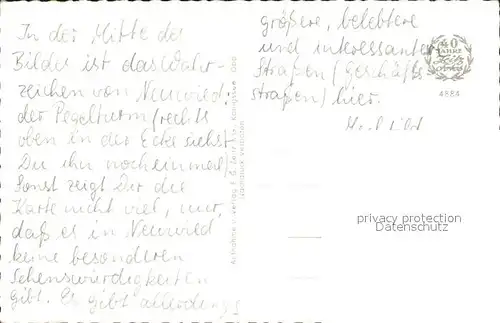 In der Mitte des
Bildes ist das Wahr-
zeichen von Neuwied
der Pegelturm (rechts
oben in der Ecke siehst
Du ihn noch einmal)
Sonst zeigt Dir die
Karte nicht viel, nur,
daß es in Neuwied
keine besonderen
Sehenswürdigkeiten
gibt. Es gibt allerdings
größere, belebtere
und interessantere
Straßen (Geschäfts-
straßen) hier.
40
JAHRE
4884
Nachdruck verboten
privacy protection